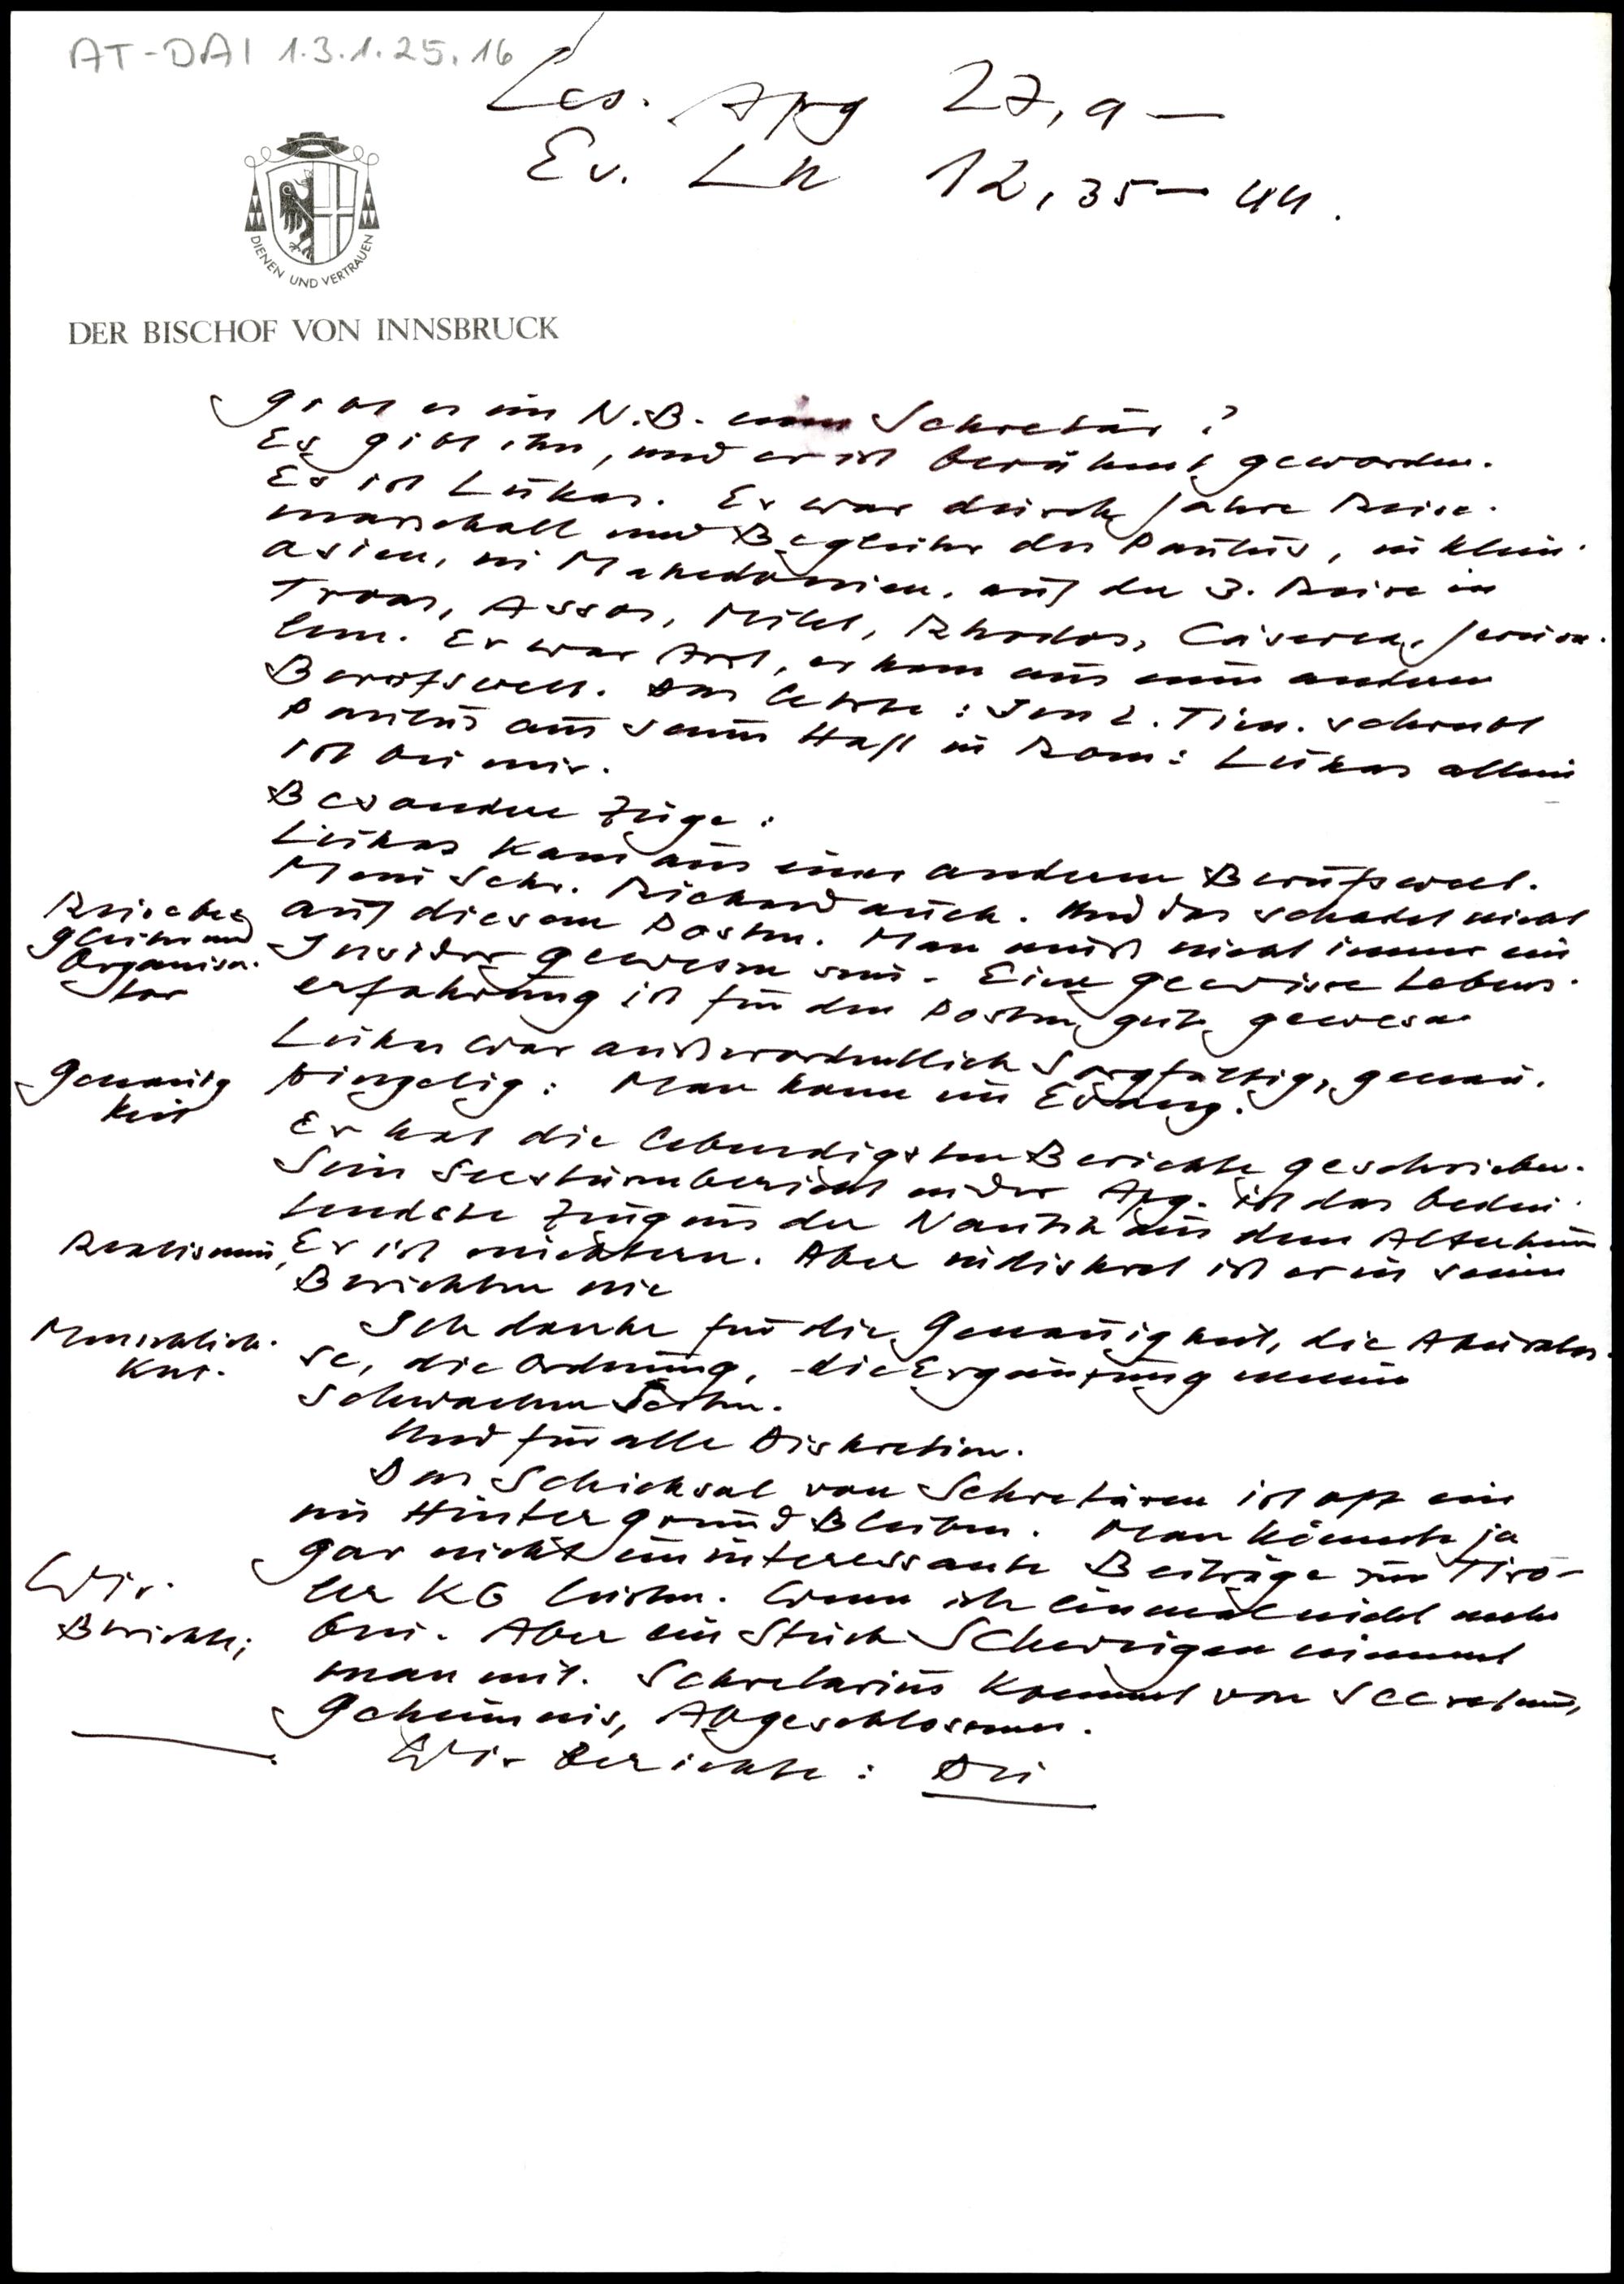 AT-DAI 1.3.1.25.16
Les. Apg 27,9 —
Ev. Lk 12,35 — 44.
DIENEN UND VERTRAUEN
DER BISCHOF VON INNSBRUCK
Gibt es im N.B. einen Sekretär?
Es gibt ihn, und er ist berühmt geworden.
Es ist Lukas. Er war durch Jahre Reise-
marschall und Begleiter des Paulus, in Klein-
asien, in Makedonien, auf der 3. Reise in
Troas, Assos, Milet, Rhodos, Cäsarea, Jerusa-
lem. Er war Arzt, er kam aus einer anderen
Berufswelt. Das letzte: Im 2. Tim. schreibt
Paulus aus seiner Haft in Rom: Lukas allein
ist bei mir.
Besondere Züge:
Lukas kam aus einer anderen Berufswelt.
Mein Sekr. Richard auch. Und das schadet nicht
Reisebe
gleiter und
Organisa-
tor
auf diesem Posten. Man muß nicht immer ein
Insider gewesen sein. Eine gewisse Lebens-
erfahrung ist für den Posten gut gewesen
Lukas war außerordentlich sorgfältig, genau.
Genauig
keit
pingelig: Man kann im Evang.
Er hat die lebendigsten Berichte geschrieben.
Sein Seesturmbericht in der Apg. ist das bedeu-
tendste Zeugnis der Nautik aus dem Altertum.
Realismus,
Er ist nüchtern. Aber indiskret ist er in seinen
Berichten nie
Menschlich-
keit.
Ich danke für die Genauigkeit, die Akurates-
se, die Ordnung, die Ergänzung meiner
schwachen Seiten.
Und für alle Diskretion.
Das Schicksal von Sekretären ist oft ein
im Hintergrund Bleiben. Man könnte ja
gar nicht uninteressante Beiträge zur Tiro-
Wir-
Berichte;
ler KG leisten. Wenn ich einmal nicht mehr
bin. Aber ein Stück Schweigen nimmt
man mit. Sekretarius kommt von Secretum,
Geheimnis, Abgeschlossenes.
Wir Berichte: